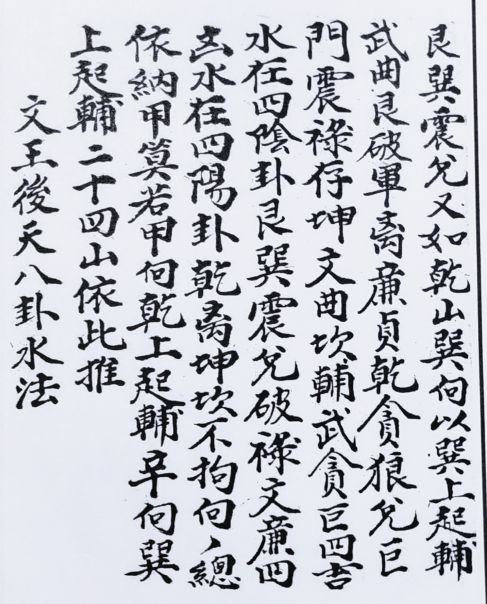 艮巽震兌又如乾山巽向以巽上起輔
武曲艮破軍离廉貞乾貪狼兌巨
門震祿存坤文曲坎輔武貪巨四吉
水在四陰卦艮巽震兌破祿文廉四
凶水在四陽卦乾离坤坎不拘向〻總
依納甲算若甲向乾上起輔辛向巽
上起輔二十四山依此推
文王後天八卦水法